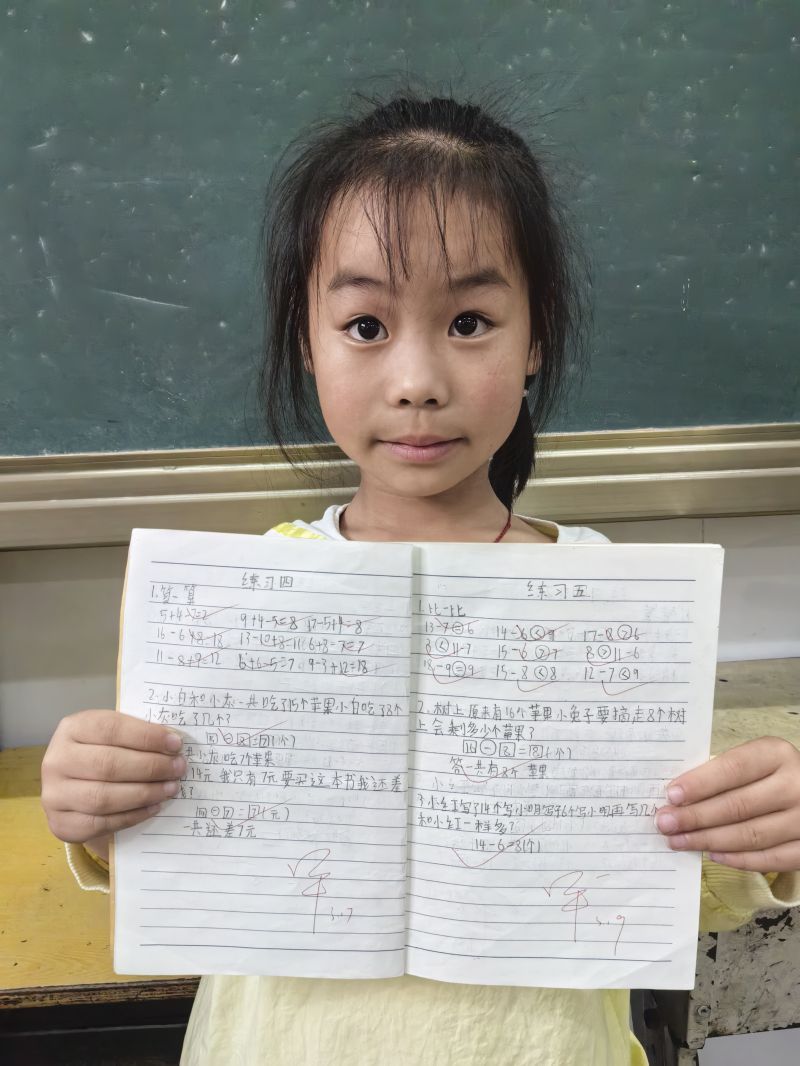 练习四
1.算一算
9+4-5=8 17-5+4=8
16-6+8=18 6+8-7=7
11-8+9=12 6+6-5=7 9-3+12=18
2.小白和小灰一共吃了15个苹果小白吃了8个
小灰吃了几个?
小灰吃7个苹果
14元我只有7元要买这本书我还差
一共还差7元
3.17
练习五
1.比一比
13-7=6 14-6<9 17-8>6
15-6>7
18-9=9 15-8<8 12-7<9
2.树上原来有16个苹果小兔子要摘走8个树
上会剩多少个苹果?
16-8=8(个)
答一共有8个苹果
3.小红写了14个写小明写了6个写小明再写几个
和小红一样多?
14-6=8(个)
3.19